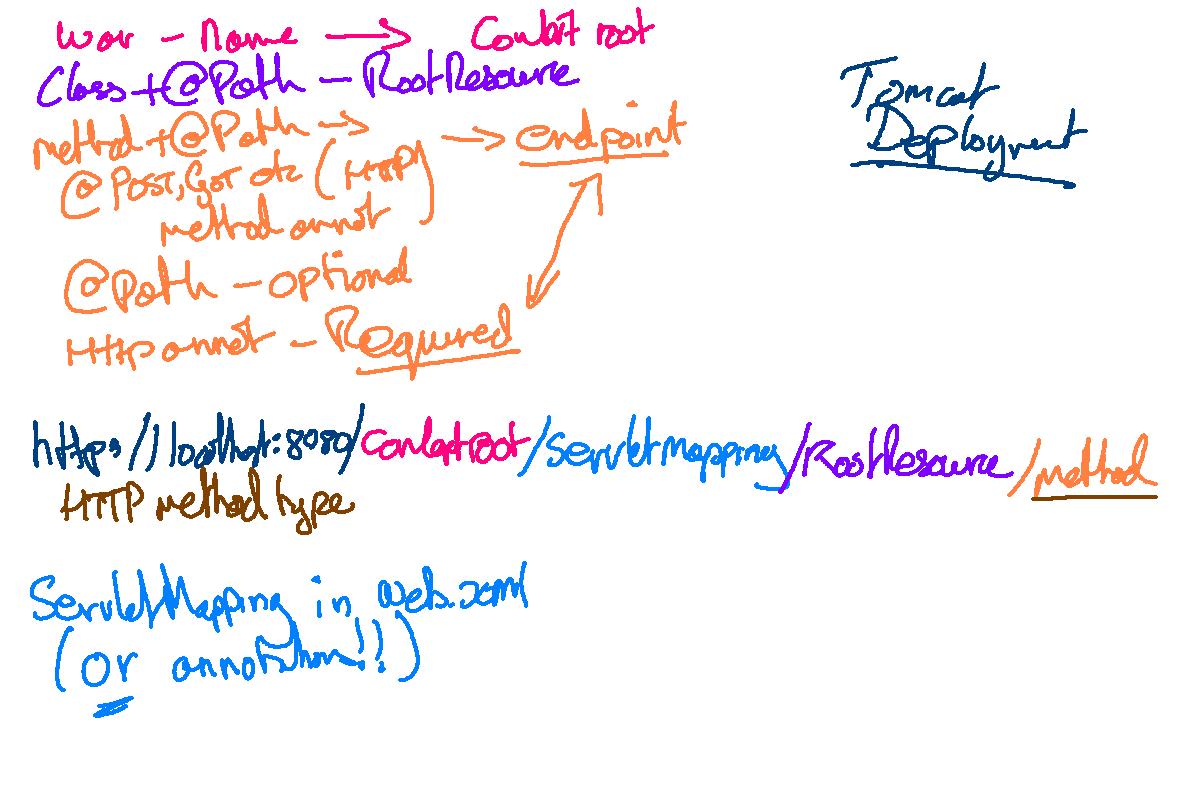 war - Name → Context root
Class + @Path - RootResource
Tomcat
Deployment
method + @Path → → endpoint
@POST, GET etc (HTTP)
method annot
@Path - optional
Http annot - Required
http://localhost:8080/contextroot/ServletMapping/RootResource/method
HTTP method type
ServletMapping in web.xml
(or annotation!!)